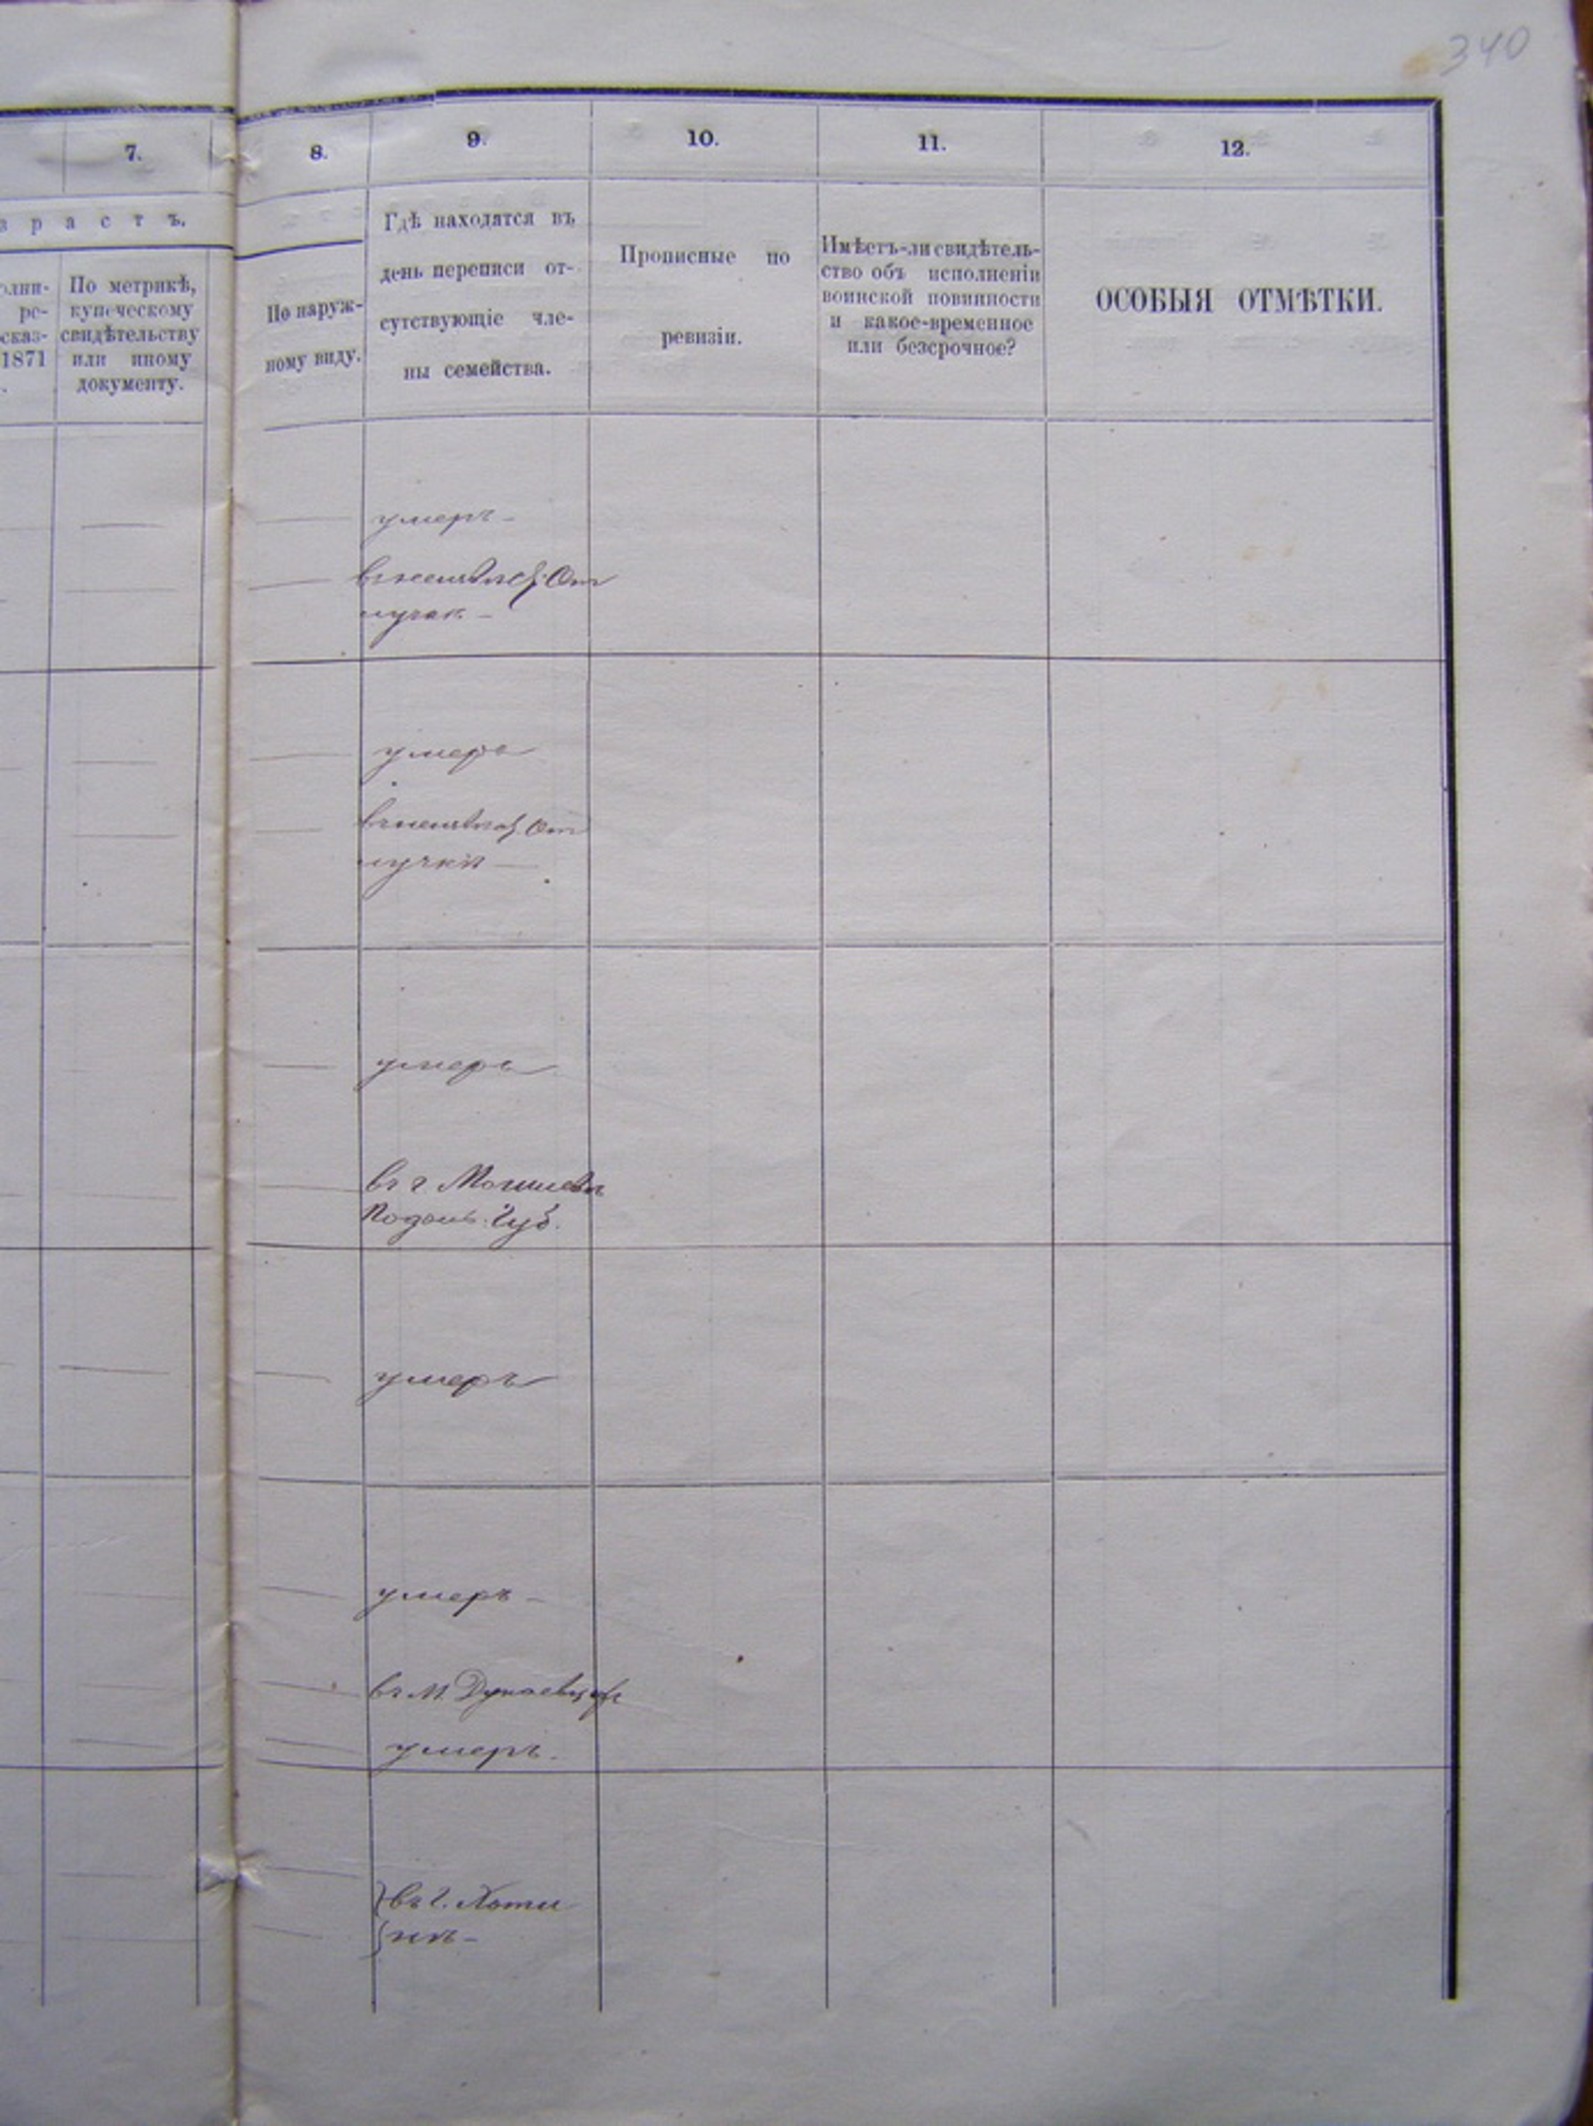 340
7.
8.
9.
10.
11.
12.
з р а с т ъ.
олни-
ре-
сказ-
1871
По метрикѣ,
купеческому
свидѣтельству
или иному
документу.
По наруж-
ному виду.
Гдѣ находятся въ
день переписи от-
сутствующіе чле-
ны семейства.
Прописные по
ревизіи.
Имѣетъ-ли свидѣтель-
ство объ исполненіи
воинской повинности
и какое-временное
или безсрочное?
ОСОБЫЯ ОТМѢТКИ.
умеръ
От
умеръ
От
лучки
умеръ
въ г Могилевѣ
Подоль. Губ.
умеръ
умеръ
въ м. Дунаевцахъ
умеръ.
въ г. Хоти
нѣ